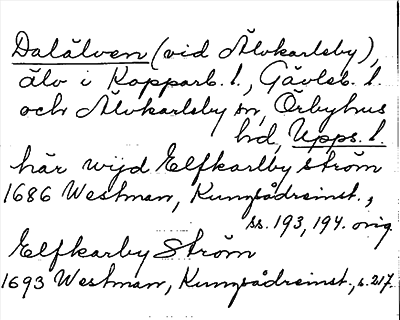 Dalälven (vid Älvkarleby),
älv i Kopparb. l., Gävleb. l.
och Älvkarleby sn, Örbyhus
hd, Upps. l.
här wijd Elfkarlby ström
1686 Westman, Kungsådreinst.,
ss. 193, 194. orig
Elfkarby Ström
1693 Westman, Kungsådreinst., s. 217.